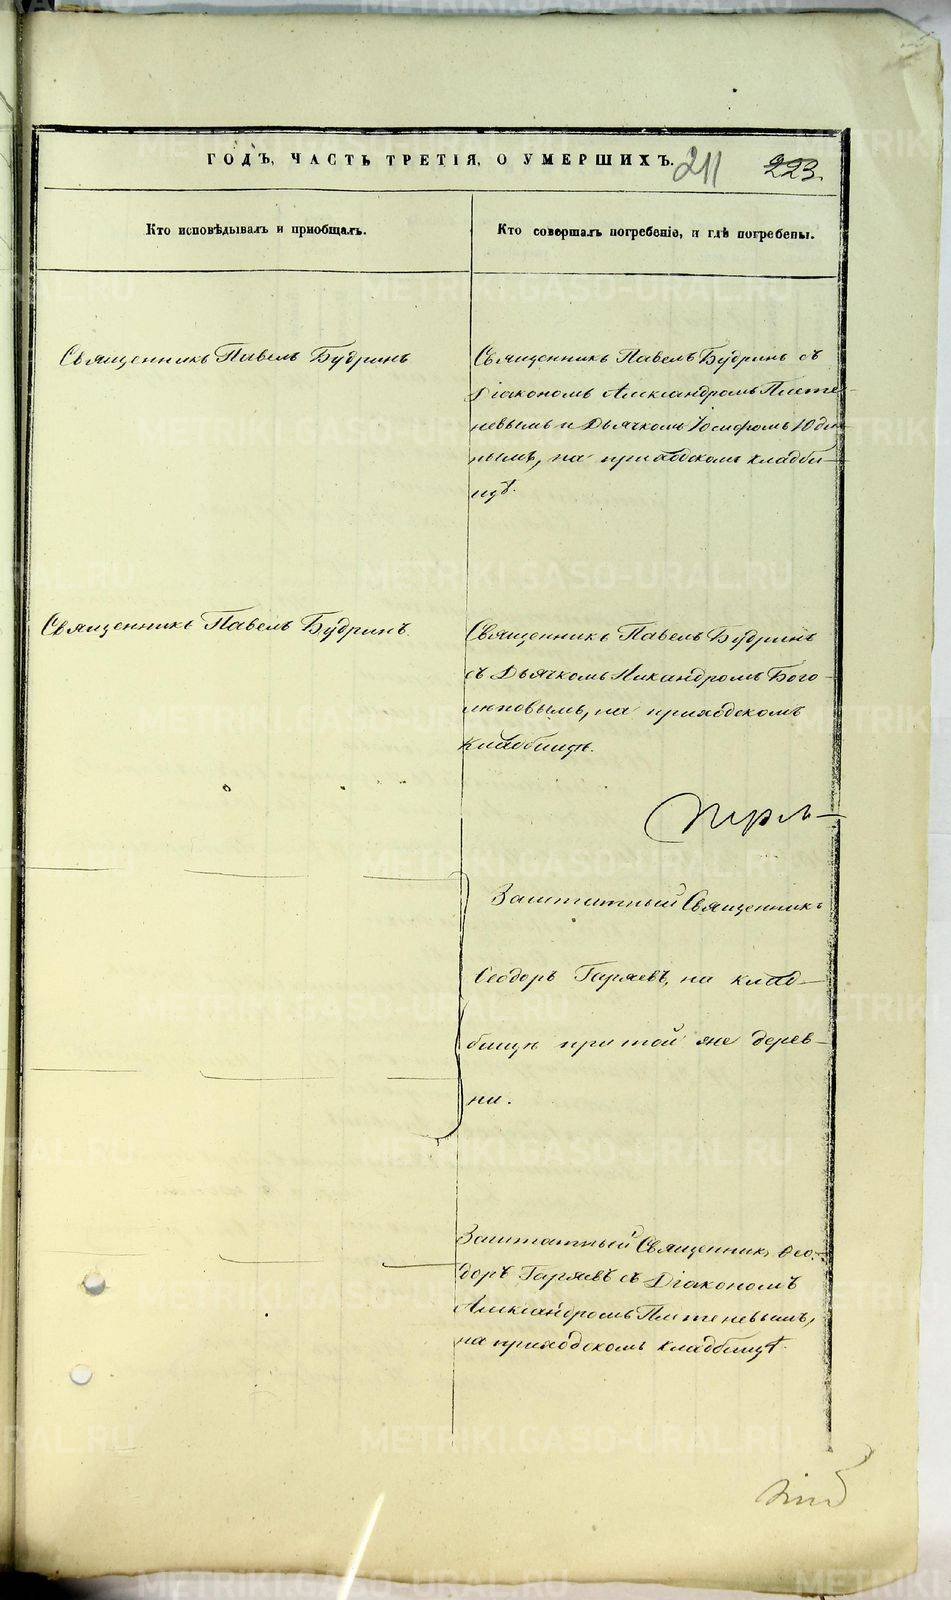 ГОДЪ, ЧАСТЬ ТРЕТІЯ, О УМЕРШИХЪ. 211 223.
Кто исповѣдывалъ и пріобщалъ.
Кто совершалъ погребеніе, и гдѣ погребены.
Священникъ Павелъ Будринъ
Священникъ Павелъ Будринъ съ
Діакономъ Александромъ Плете-
невымъ и Дьячкомъ Іосифомъ Юди-
нымъ, на приходскомъ кладби-
щѣ.
Священникъ Павелъ Будринъ.
Священникъ Павелъ Будринъ
съ Дьячкомъ Никандромъ Бого-
любовымъ, на приходскомъ
кладбищѣ.
Заштатный Священникъ
Ѳеодоръ Гаряевъ, на клад-
бищѣ при той же дерев-
ни.
Заштатный Священникъ Ѳео-
доръ Гаряевъ съ Діакономъ
Александромъ Плетеневымъ,
на приходскомъ кладбищѣ.
METRIKI.GASO-URAL.RU